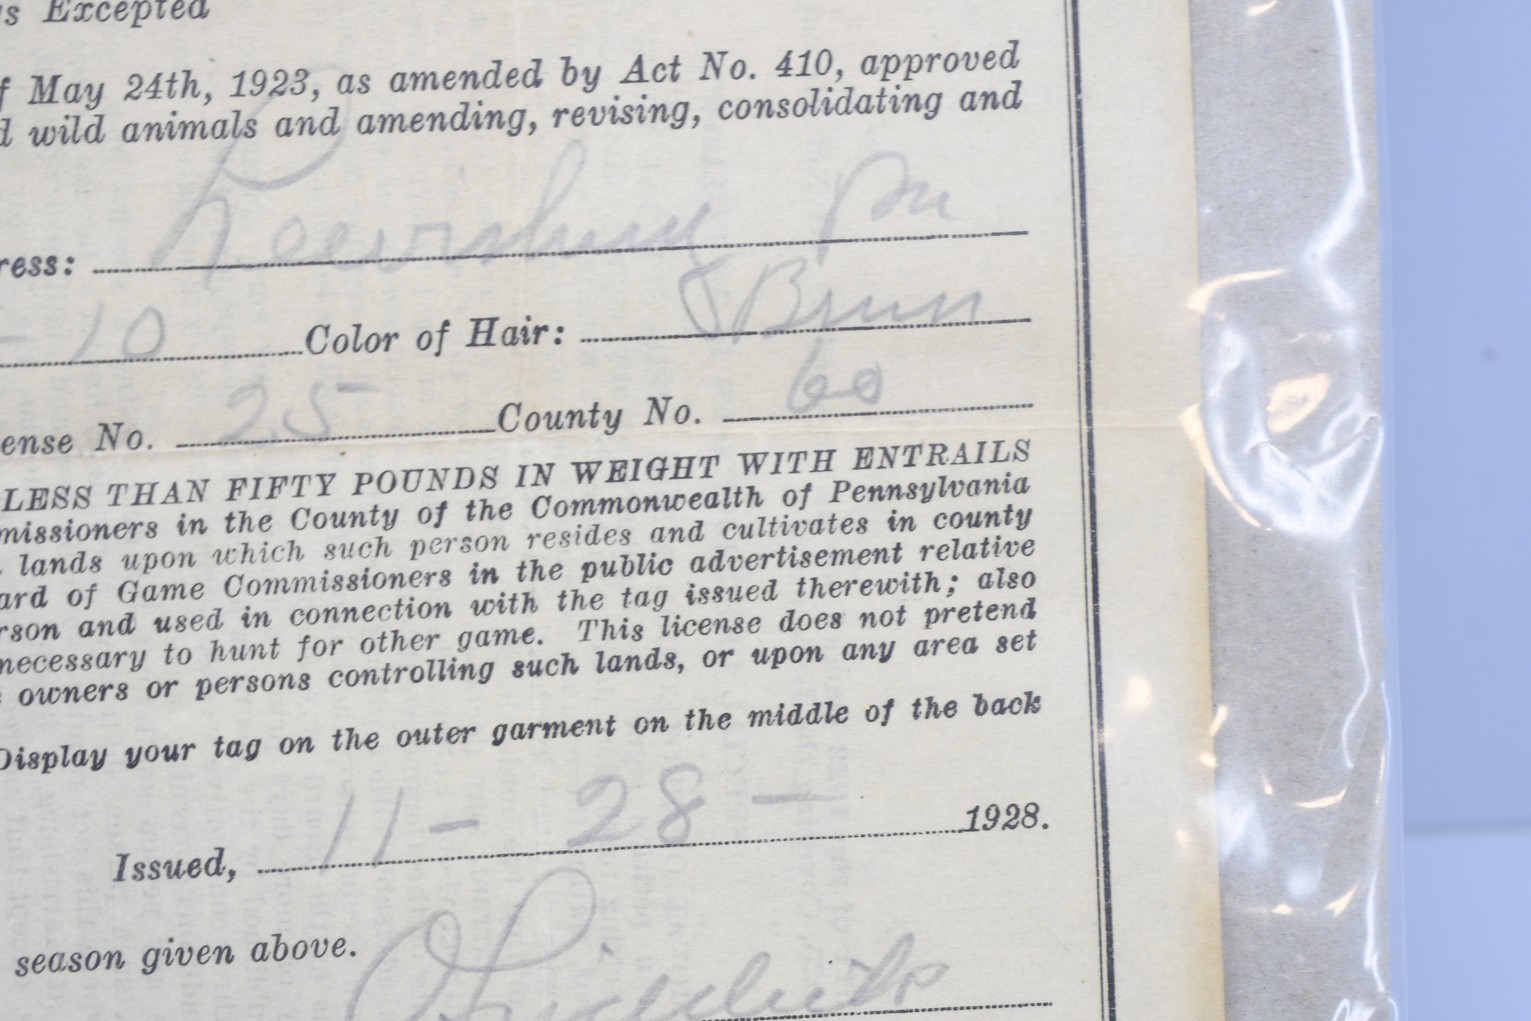 s Excepted
f May 24th, 1923, as amended by Act No. 410, approved
d wild animals and amending, revising, consolidating and
ress: Lewisburg Pa
- 10 Color of Hair: Brun
ense No. 25 County No. 60
LESS THAN FIFTY POUNDS IN WEIGHT WITH ENTRAILS
missioners in the County of the Commonwealth of Pennsylvania
lands upon which such person resides and cultivates in county
ard of Game Commissioners in the public advertisement relative
rson and used in connection with the tag issued therewith; also
necessary to hunt for other game. This license does not pretend
owners or persons controlling such lands, or upon any area set
Display your tag on the outer garment on the middle of the back
Issued, 11 - 28 - 1928.
season given above.